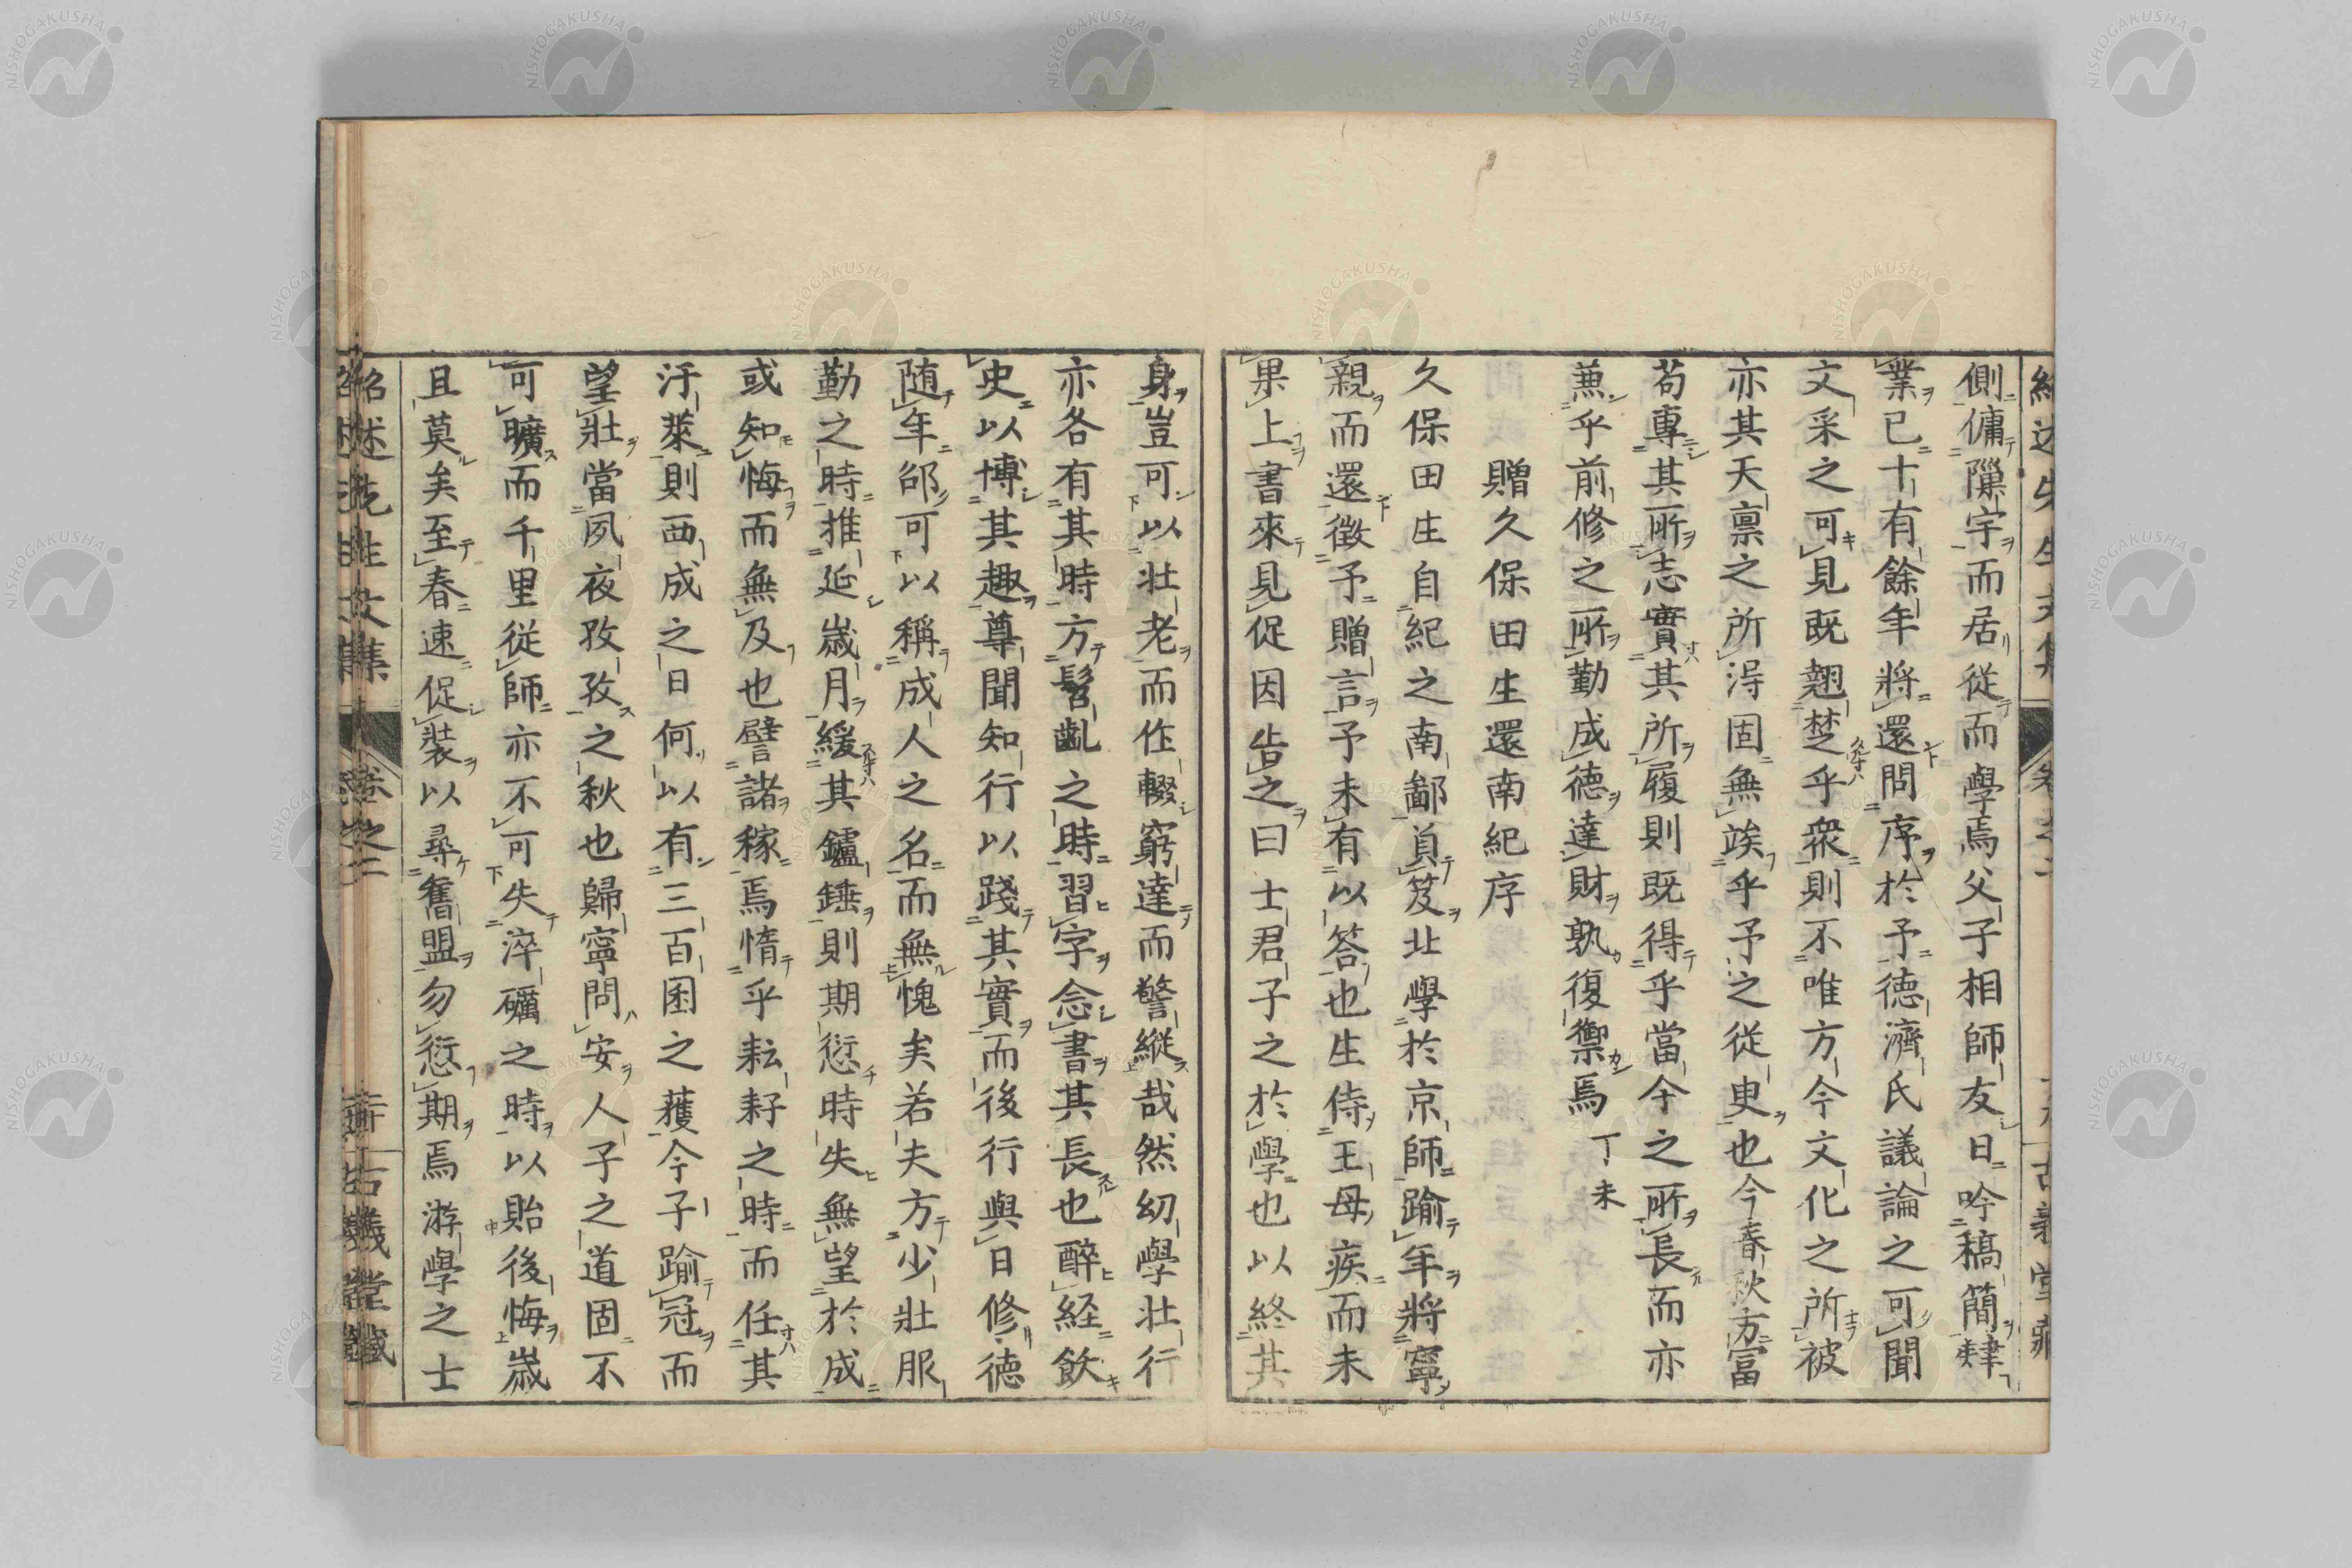 側傭隟宇而居從而學焉父子相師友日吟稿簡肄
業已十有餘年將還問序於予德濟氏議論之可聞
文采之可見既翹楚乎衆則不唯方今文化之所被
亦其天稟之所得固無竢乎予之從臾也今春秋方富
苟專其所志實其所履則既得乎當今之所長而亦
兼乎前修之所勤成德達財孰復禦焉 丁未
贈久保田生還南紀序
久保田生自紀之南鄙負笈北學於京師踰年將寧
親而還徵予贈言予未有以答也生侍王母疾而未
果上書來見促因告之曰士君子之於學也以終其
身豈可以壯老而作輟窮達而警縱哉然幼學壯行
亦各有其時方髫齔之時習字念書其長也醉經飲
史以博其趣尊聞知行以踐其實而後行與日修德
随年邵可以稱成人之名而無愧矣若夫方少壯服
勤之時推延歲月緩其鑪錘則期愆時失無望於成
或知悔而無及也譬諸稼焉惰乎耘耔之時而任其
汙萊則西成之日何以有三百囷之穫今子踰冠而
望壯當夙夜孜孜之秋也歸寧問安人子之道固不
可曠而千里從師亦不可失淬礪之時以貽後悔歲
且莫矣至春速促裝以尋舊盟勿愆期焉游學之士
紹述先生文集 卷之二 古義堂藏